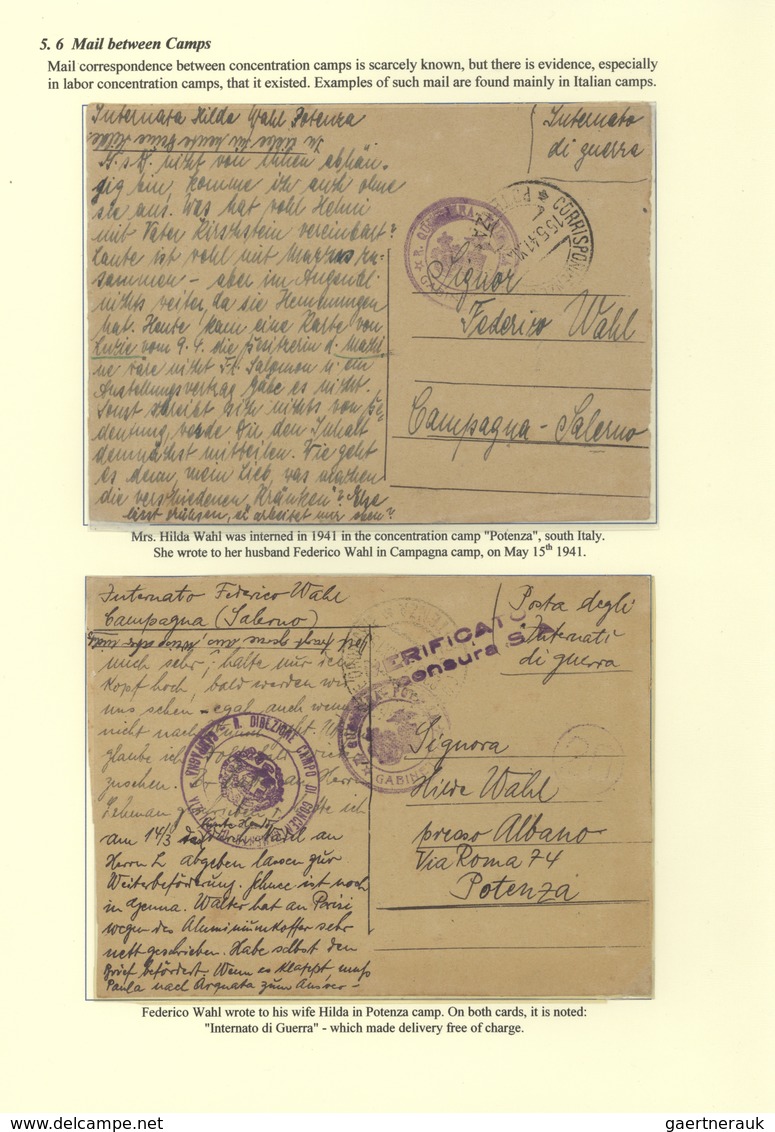 5. 6 Mail between Camps
Mail correspondence between concentration camps is scarcely known, but there is evidence, especially
in labor concentration camps, that it existed. Examples of such mail are found mainly in Italian camps.
Internata Hilda Wahl Potenza
Internato
di guerra
nicht von ihnen abhän-
gig bin, komme ich auch ohne
sie aus. Was hat wohl Helmi
mit Vater Kirschstein vereinbart?
Laute ist wohl mit Marcus zu-
sammen – aber im Augenbl.
nichts weiter, da sie Hemmungen
hat. Heute kam eine Karte von
Luzie vom 9.4. die Besitzerin d. Maschi
ne wäre nicht Frl. Salomon u. ein
Anstellungsvertrag gäbe es nicht.
Sonst schreibt sich nichts von Be-
deutung, werde Dir den Inhalt
demnächst mitteilen. Wie geht
es denn, mein Lieb, was machen
die verschiedenen Kranken?
CORRISPON
15.5.41
Signor
Federico Wahl
Campagna - Salerno
Mrs. Hilda Wahl was interned in 1941 in the concentration camp "Potenza", south Italy.
She wrote to her husband Federico Wahl in Campagna camp, on May 15th 1941.
Internato Federico Wahl
Campagna (Salerno)
Posta degli
Internati
di guerra
VERIFICATO
censura
mich sehr, halte nur ich
Kopf hoch, bald werden wir
uns sehen – egal auch wenn
nicht nach
glaube ich
zusehen.
Lehman geschrieben
am 14/3 an
Herrn L abgeben lassen zur
Weiterbeförderung. ist noch
in Genua. Walter hat an Parisi
wegen des Aluminiumkoffer sehr
nett geschrieben. Habe selbst den
Brief befördert. Wenn es klappt, muss
Paula nach Arquata zum Ausver-
R. DIREZIONE CAMPO DI CONCEN
GABIN
Signora
Hilde Wahl
presso Albano
Via Roma 74
Potenza
Federico Wahl wrote to his wife Hilda in Potenza camp. On both cards, it is noted:
"Internato di Guerra" - which made delivery free of charge.
gaertnerauk